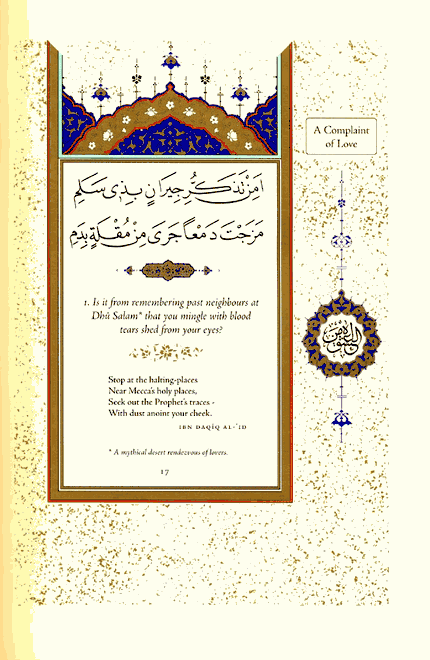 A Complaint
of Love
اَمِنْ تَذَكُّرِ جِيرَانٍ بِذِى سَلَمِ
مَزَجْتَ دَمْعاً جَرَى مِنْ مُقْلَةٍ بِدَمِ
1. Is it from remembering past neighbours at
Dhū Salam* that you mingle with blood
tears shed from your eyes?
Stop at the halting-places
Near Mecca's holy places,
Seek out the Prophet's traces -
With dust anoint your cheek.
IBN DAQĪQ AL-ʿID
* A mythical desert rendezvous of lovers.
17